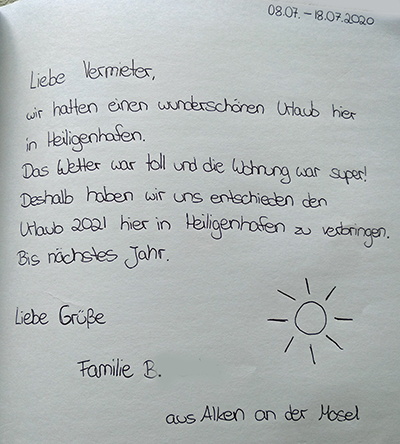 08.07. – 18.07.2020
Liebe Vermieter,
wir hatten einen wunderschönen Urlaub hier
in Heiligenhafen.
Das Wetter war toll und die Wohnung war super!
Deshalb haben wir uns entschieden den
Urlaub 2021 hier in Heiligenhafen zu verbringen.
Bis nächstes Jahr.
Liebe Grüße
Familie B.
aus Alken an der Mosel